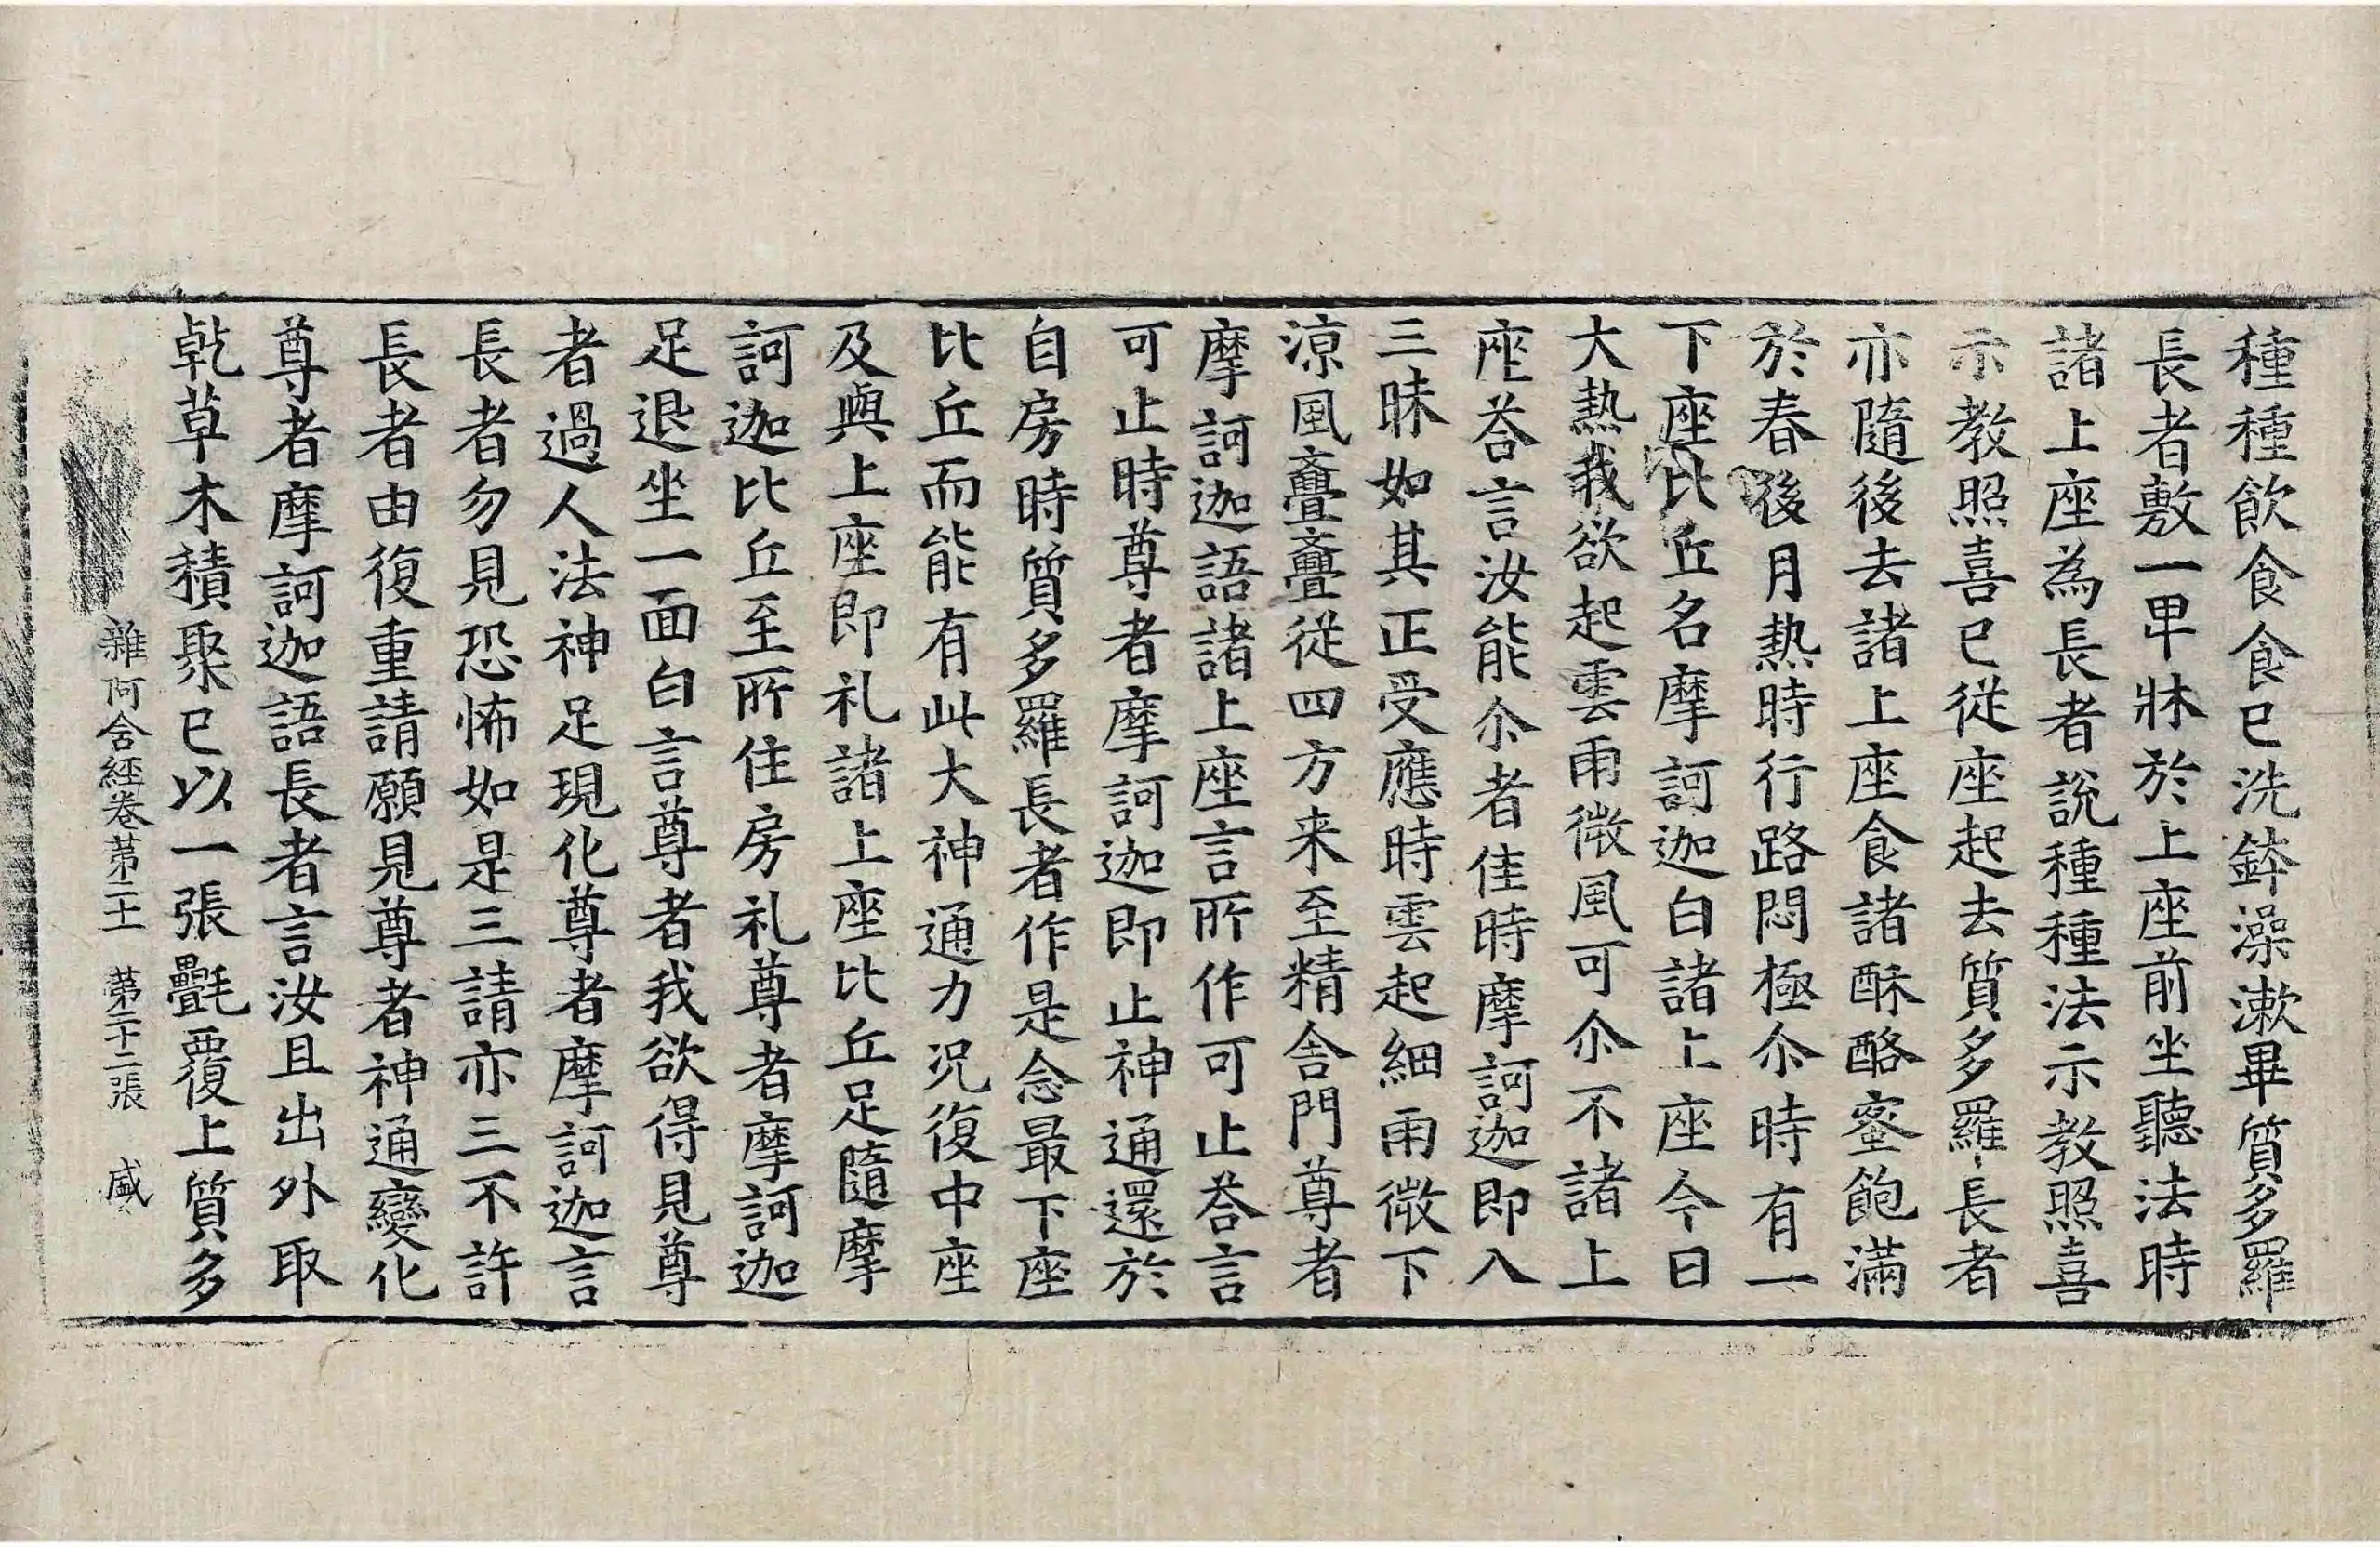 種種飲食食已洗鉢澡漱畢質多羅
長者敷一卑牀於上座前坐聽法時
諸上座為長者說種種法示教照喜
示教照喜已從座起去質多羅長者
亦隨後去諸上座食諸酥酪蜜飽滿
於春後月熱時行路悶極尒時有一
下座比丘名摩訶迦白諸上座今日
大熱我欲起雲雨微風可尒不諸上
座荅言汝能尒者佳時摩訶迦即入
三昧如其正受應時雲起細雨微下
涼風亹亹從四方来至精舍門尊者
摩訶迦語諸上座言所作可止荅言
可止時尊者摩訶迦即止神通還於
自房時質多羅長者作是念最下座
比丘而能有此大神通力况復中座
及與上座即礼諸上座比丘足隨摩
訶迦比丘至所住房礼尊者摩訶迦
足退坐一面白言尊者我欲得見尊
者過人法神足現化尊者摩訶迦言
長者勿見恐怖如是三請亦三不許
長者由復重請願見尊者神通變化
尊者摩訶迦語長者言汝且出外取
乾草木積聚已以一張㲲覆上質多
雜阿含經卷苐二十一 苐二十二張 盛